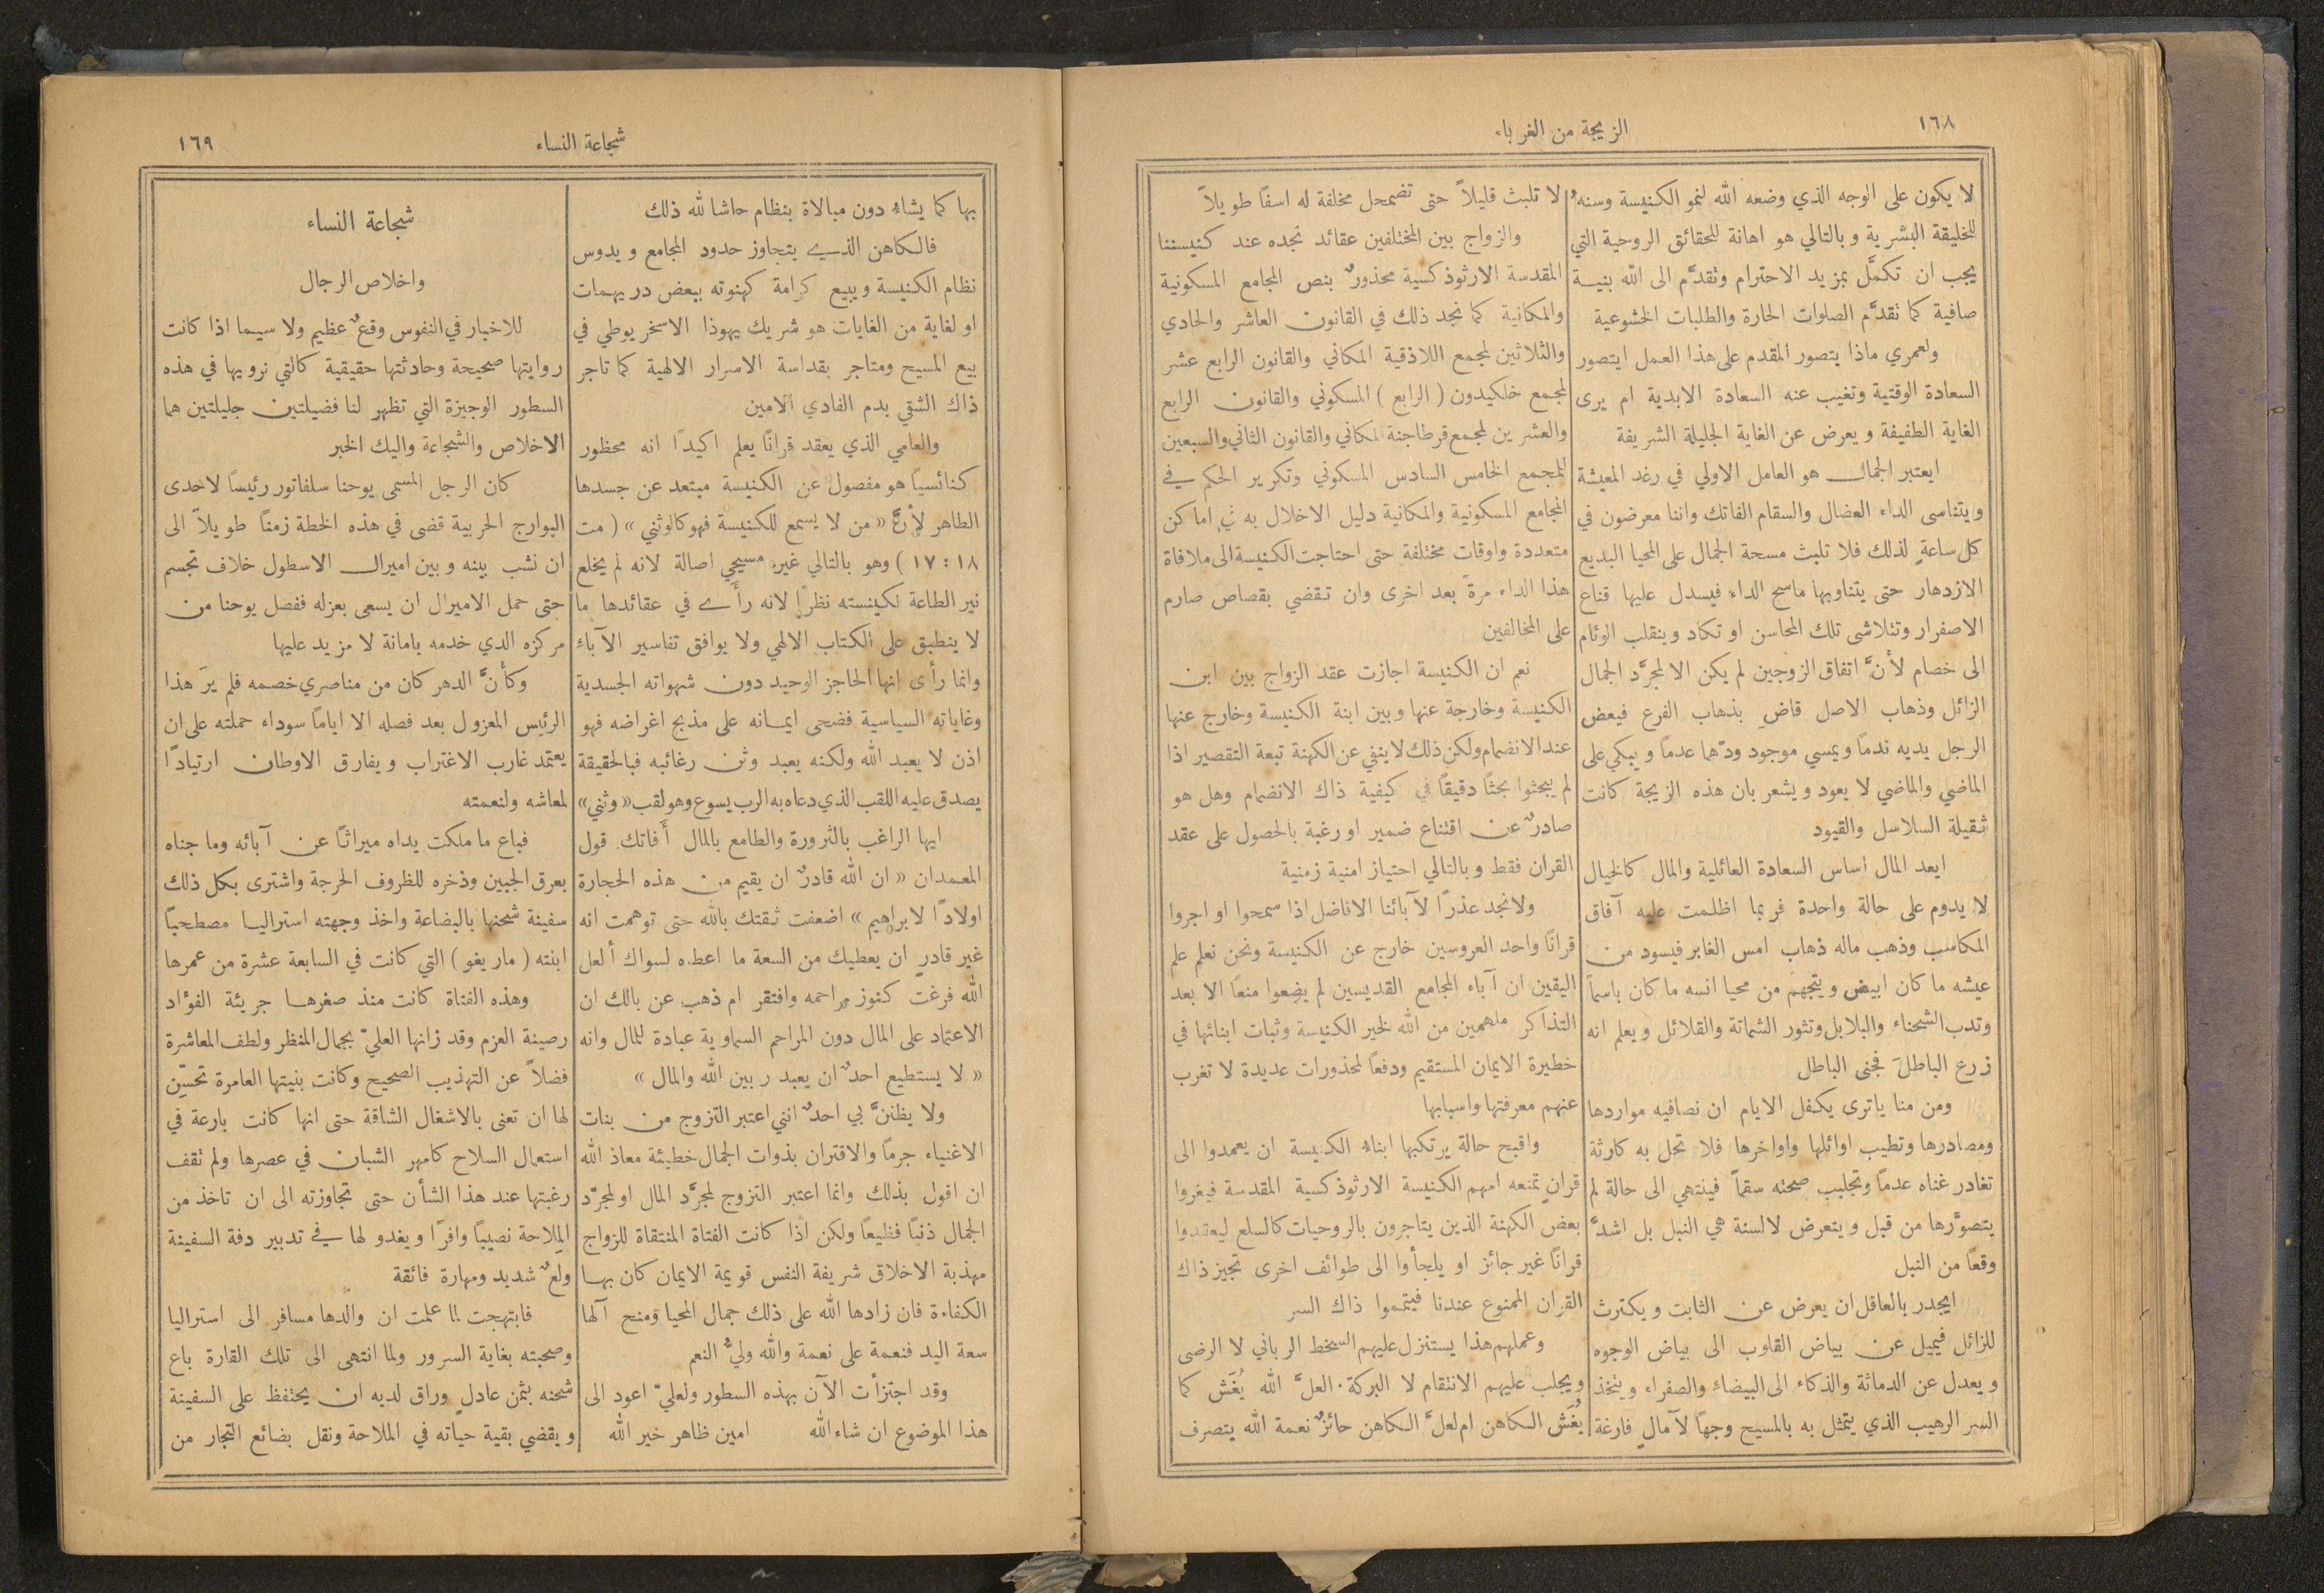 ١٦٨
الزيجة من الغرباء
لا يكون على الوجه الذي وضعه الله لنمو الكنيسة وسنهُ
للخليقة البشرية وبالتالي هو اهانة للحقائق الروحية التي
يجب ان تكمَّل بمزيد الاحترام وتقدَّم الى الله بنيــة
صافية كما تقدَّم الصلوات الحارة والطلبات الخشوعية
ولعمري ماذا يتصور المقدم على هذا العمل ايتصور
السعادة الوقتية وتغيب عنه السعادة الابدية ام يرى
الغاية الطفيفة ويعرض عن الغاية الجليلة الشريفة
ايعتبر الجمال هو العامل الاولي في رغد المعيشة
ويتناسى الداء العضال والسقام الفاتك واننا معرضون في
كل ساعةٍ لذلك فلا تلبث مسحة الجمال على المحيا البديع
الازدهار حتى يتناوبها ماسح الداء فيسدل عليها قناع
الاصفرار وتتلاشى تلك المحاسن او تكاد وينقلب الوئام
الى خصام لأنَّ اتفاق الزوجين لم يكن الا لمجرَّد الجمال
الزائل وذهاب الاصل قاضٍ بذهاب الفرع فيعض
الرجل يديه ندماً ويمسي موجود ودّها عدماً ويبكي على
الماضي والماضي لا يعود ويشعر بان هذه الزيجة كانت
ثقيلة السلاسل والقيود
ايعد المال اساس السعادة العائلية والمال كالخيال
لا يدوم على حالة واحدة فربما اظلمت عليه آفاق
المكاسب وذهب ماله ذهاب امس الغابر فيسود من
عيشه ما كان ابيض ويتجهم من محيا انسه ما كان باسماً
وتدب الشحناء والبلابل وتثور الشماتة والقلائل ويعلم انه
زرع الباطلَ فجنى الباطل
ومن منا ياترى يكفل الايام ان نصافيه مواردها
ومصادرها وتطيب اوائلها واواخرها فلا تحل به كارثة
تغادر غناه عدماً وتجليب صحته سقماً فينتهي الى حالة لم
يتصوَّرها من قبل ويتعرض لالسنة هي النبل بل اشدَّ
وقعاً من النبل
ايجدر بالعاقل ان يعرض عن الثابت ويكترث
للزائل فيميل عن بياض القلوب الى بياض الوجوه
ويعدل عن الدماثة والذكاء الى البيضاء والصفراء ويتخذ
السر الرهيب الذي يتمثل به بالمسيح وجهاً لآمالٍ فارغة
لا تلبث قليلاً حتى تضمحل مخلفة له اسفاً طويلاً
والزواج بين المختلفين عقائد نجده عند كنيستنا
المقدسة الارثوذكسية محذورٌ بنص المجامع المسكونية
والمكانية كما نجد ذلك في القانون العاشر والحادي
والثلاثين لمجمع اللاذقية المكاني والقانون الرابع عشر
لمجمع خلكيدون ( الرابع ) المسكوني والقانون الرابع
والعشرين لمجمع قرطاجنة المكاني والقانون الثاني والسبعين
للمجمع الخامس السادس المسكوني وتكرير الحكم في
المجامع المسكونية والمكانية دليل الاخلال به في اماكن
متعددة واوقات مختلفة حتى احتاجت الكنيسة الى ملافاة
هذا الداء مرةً بعد اخرى وان تقضي بقصاص صارم
على المخالفين
نعم ان الكنيسة اجازت عقد الزواج بين ابن
الكنيسة وخارجة عنها وبين ابنة الكنيسة وخارج عنها
عند الانضمام ولكن ذلك لا ينفي عن الكهنة تبعة التقصير اذا
لم يبحثوا بحثاً دقيقاً في كيفية ذاك الانضمام وهل هو
صادرٌ عن اقتناع ضمير او رغبة بالحصول على عقد
القران فقط وبالتالي احتياز امنية زمنية
ولا نجد عذراً لآبائنا الافاضل اذا سمحوا او اجروا
قراناً واحد العروسين خارج عن الكنيسة ونحن نعلم علم
اليقين ان آباء المجامع القديسين لم يضعوا منعاً الا بعد
التذاكر ملهمين من الله لخير الكنيسة وثبات ابنائها في
خطيرة الايمان المستقيم ودفعاً لمحذورات عديدة لا تغرب
عنهم معرفتها واسبابها
واقبح حالة يرتكبها ابناء الكنيسة ان يعمدوا الى
قرانٍ تمنعه امهم الكنيسة الارثوذكسية المقدسة فيغروا
بعض الكهنة الذين يتاجرون بالروحيات كالسلع ليعقدوا
قراناً غير جائز او يلجأوا الى طوائف اخرى تجيز ذاك
القران الممنوع عندنا فيتمموا ذاك السر
وعملهم هذا يستنزل عليهم السخط الرباني لا الرضى
ويجلب عليهم الانتقام لا البركة · العلَّ الله يُغَش كما
يُغَش الكاهن ام لعلَّ الكاهن حائزٌ نعمة الله يتصرف
شجاعة النساء
١٦٩
بها كما يشاء دون مبالاة بنظام حاشا لله ذلك
فالكاهن الذي يتجاوز حدود المجامع ويدوس
نظام الكنيسة ويبيع كرامة كهنوته ببعض دريهمات
او لغاية من الغايات هو شريك يهوذا الاسخريوطي في
بيع المسيح ومتاجر بقداسة الاسرار الالهية كما تاجر
ذاك الشقي بدم الفادي الامين
والعامي الذي يعقد قراناً يعلم اكيداً انه محظور
كنائسياً هو مفصول عن الكنيسة مبتعد عن جسدها
الطاهر لأنَّ « من لا يسمع للكنيسة فهو كالوثني » ( مت
١٨ : ١٧ ) وهو بالتالي غير مسيحي اصالة لانه لم يخلع
نير الطاعة لكنيسته نظراً لانه رأى في عقائدها ما
لا ينطبق على الكتاب الالهي ولا يوافق تفاسير الآباء
وانما رأى انها الحاجز الوحيد دون شهواته الجسدية
وغاياته السياسية فضحى ايمانه على مذبح اغراضه فهو
اذن لا يعبد الله ولكنه يعبد وثن رغائبه فبالحقيقة
يصدق عليه اللقب الذي دعاه به الرب يسوع وهو لقب « وثني »
ايها الراغب بالثرورة والطامع بالمال أَفاتك قول
المعمدان « ان الله قادرٌ ان يقيم من هذه الحجارة
اولاداً لابراهيم » اضعفت ثقتك بالله حتى توهمت انه
غير قادرٍ ان يعطيك من السعة ما اعطاه لسواك ألعل
الله فرغت كنوز مراحمه وافتقر ام ذهب عن بالك ان
الاعتماد على المال دون المراحم السماوية عبادة للمال وانه
« لا يستطيع احدٌ ان يعبد ربين الله والمال »
ولا يظننَّ بي احدٌ انني اعتبر التزوج من بنات
الاغنياء جرماً والاقتران بذوات الجمال خطيئة معاذ الله
ان اقول بذلك وانما اعتبر التزوج لمجرَّد المال او لمجرّد
الجمال ذنباً فظيعاً ولكن اذا كانت الفتاة المنتقاة للزواج
مهذبة الاخلاق شريفة النفس قويمة الايمان كان بهـا
الكفاءة فان زادها الله على ذلك جمال المحيا ومنح آلها
سعة اليد فنعمة على نعمة والله وليُّ النعم
وقد اجتزأت الآن بهذه السطور ولعليّ اعود الى
هذا الموضوع ان شاء الله امين ظاهر خير الله
شجاعة النساء
واخلاص الرجال
للاخبار في النفوس وقعٌ عظيم ولا سيما اذا كانت
روايتها صحيحة وحادثتها حقيقية كالتي نرويها في هذه
السطور الوجيزة التي تظهر لنا فضيلتين جليلتين هما
الاخلاص والشجاعة واليك الخبر
كان الرجل المسمى يوحنا سلفاتور رئيساً لاحدى
البوارج الحربية قضى في هذه الخطة زمناً طويلاً الى
ان نشب بينه وبين اميرال الاسطول خلاف تجسم
حتى حمل الاميرال ان يسعى بعزله ففصل يوحنا من
مركزه الدي خدمه بامانة لا مزيد عليها
وكأنَّ الدهر كان من مناصري خصمه فلم يرَ هذا
الرئيس المعزول بعد فصله الا اياماً سوداء حملته على ان
يعتمد غارب الاغتراب ويفارق الاوطان ارتياداً
لمعاشه ولنعمته
فباع ما ملكت يداه ميراثاً عن آبائه وما جناه
بعرق الجبين وذخره للظروف الحرجة واشترى بكل ذلك
سفينة شحنها بالبضاعة واخذ وجهته استراليـا مصطحباً
ابنته ( ماريغو ) التي كانت في السابعة عشرة من عمرها
وهذه الفتاة كانت منذ صغرهـا جريئة الفؤاد
رصينة العزم وقد زانها العليّ بجمال المنظر ولطف المعاشرة
فضلاً عن التهذيب الصحيح وكانت بنيتها العامرة تحسّين
لها ان تعنى بالاشغال الشاقة حتى انها كانت بارعة في
استعمال السلاح كامهر الشبان في عصرها ولم تقف
رغبتها عند هذا الشأن حتى تجاوزته الى ان تاخذ من
المِلاحة نصيباً وافراً ويغدو لها في تدبير دفة السفينة
ولعٌ شديد ومهارة فائقة
فابتهجت لما علمت ان والدها مسافر الى استراليا
وصحبته بغاية السرور ولما انتهى الى تلك القارة باع
شحنه بثمن عادلٍ وراق لديه ان يحتفظ على السفينة
ويقضي بقية حياته في الملاحة ونقل بضائع التجار من